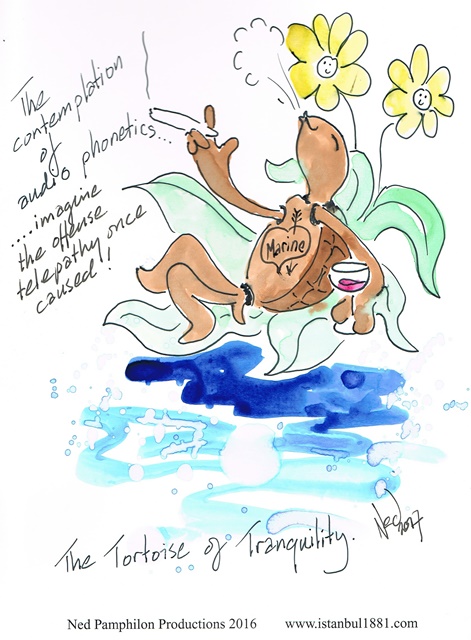 The
contemplation
of
audio phonetics...
....imagine
the offense
telepathy once
caused!
Marine
The Tortoise of Tranquility.
Ned Pamphilon Productions 2016 www.istanbul1881.com